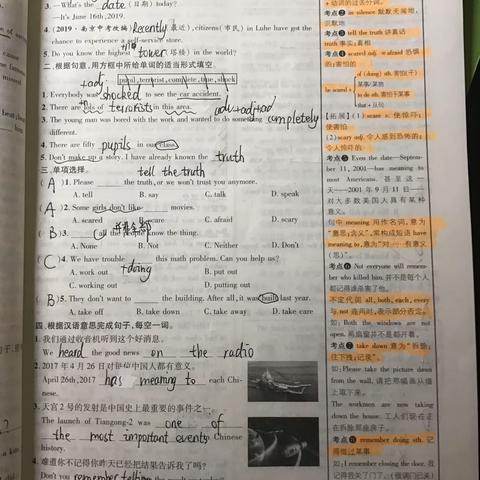 3. —What's the date (日期) today?
—It's June 16th, 2019.
4. (2019·南京中考改编) Recently (最近), citizens (市民) in Luhe have got the
chance to experience a self-service store.
5. Do you know the highest tower (塔楼) in the world?
二、根据句意,用方框中所给单词的适当形式填空。
+adj
pupil, terrorist, complete, true, shock
1. Everybody was shocked to see the car accident.
2. There are lots of terrorists in this area.
adv+adj+ad
3. The young man was bored with the work and wanted to do something completely
different.
4. There are fifty pupils in our class.
5. Don't make up a story. I have already known the truth
三、单项选择。
tell the truth
(A) 1. Please the truth, or we won't trust you anymore.
A. tell B. say C. talk D. speak
(A) 2. Some girls don't like movies.
A. scared B. scare C. afraid D. scary
(B) 3. all the people know the thing.
A. None B. Not C. Neither D. Don't
(C) 4. We have trouble this math problem. Can you help us?
+doing
A. work out B. put out
C. working out D. putting out
(B) 5. They don't want to the building. After all, it was built last year.
A. take off B. take down C. take away D. take care
四、根据汉语意思完成句子,每空一词。
1. 我们通过收音机听到这个好消息。
We heard the good news on the radio
2. 2017年4月26日对每位中国人都有意义。
April 26th, 2017 has meaning to each Chi-
nese.
3. 天宫2号的发射是中国史上最重要的事件之一。
The launch of Tiangong-2 was one of
the most important events Chinese
history.
4. 难道你不记得你昨天已经把结果告诉我了吗?
Don't you remember telling
+动词的过去分词。
考点② in silence 默默无闻地,
沉默地
考点③ tell the truth 讲真话
truth 事实;真相
考点④ scared adj. 害怕的
of (doing) sth. 害怕(干)
某事/某物
be scared to do sth. 害怕干某事
that + 从句
【拓展】(1) scare v. 使惊吓;
使害怕
(2) scary adj. 令人感到恐怖的;
令人惊吓的
考点⑤ Even the date—Septem-
ber 11, 2001—has meaning to
most Americans. 甚至这一
天——2001年9月11日——
对大多数美国人具有某种
意义。
句中 meaning 用作名词,意为
“意思;含义”,常构成短语 have
meaning to,意为“对……有意义
(思)”。
考点⑥ Not everyone will remem-
ber who killed him. 并不是每个人
都记得谁杀害了他。
不定代词 all, both, each, every
与 not 连用时,表示部分否定。
如: Both the windows are not
open. 两扇窗并不是都开着。
考点⑦ take down 意为“拆毁;
往下拽;记录”。
如: Please take the picture down
from the wall. 请把那幅画从墙
上取下来。
The workmen are now taking
down the house. 工人们现在正
在拆除那座房子。
考点⑧ remember doing sth. 记
得做过某事
如: I remember closing the door. 我
记得我关了门了。